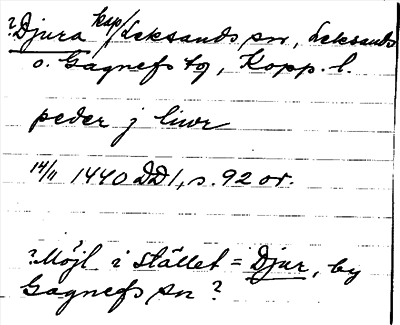 ?Djura ksp/Leksands sn, Leksands
o. Gagnefs tg, Kopp. l.
peder j liwr
14/11 1440 DD1, s. 92 or.
?Möjl i stället = Djur, by
Gagnefs sn?